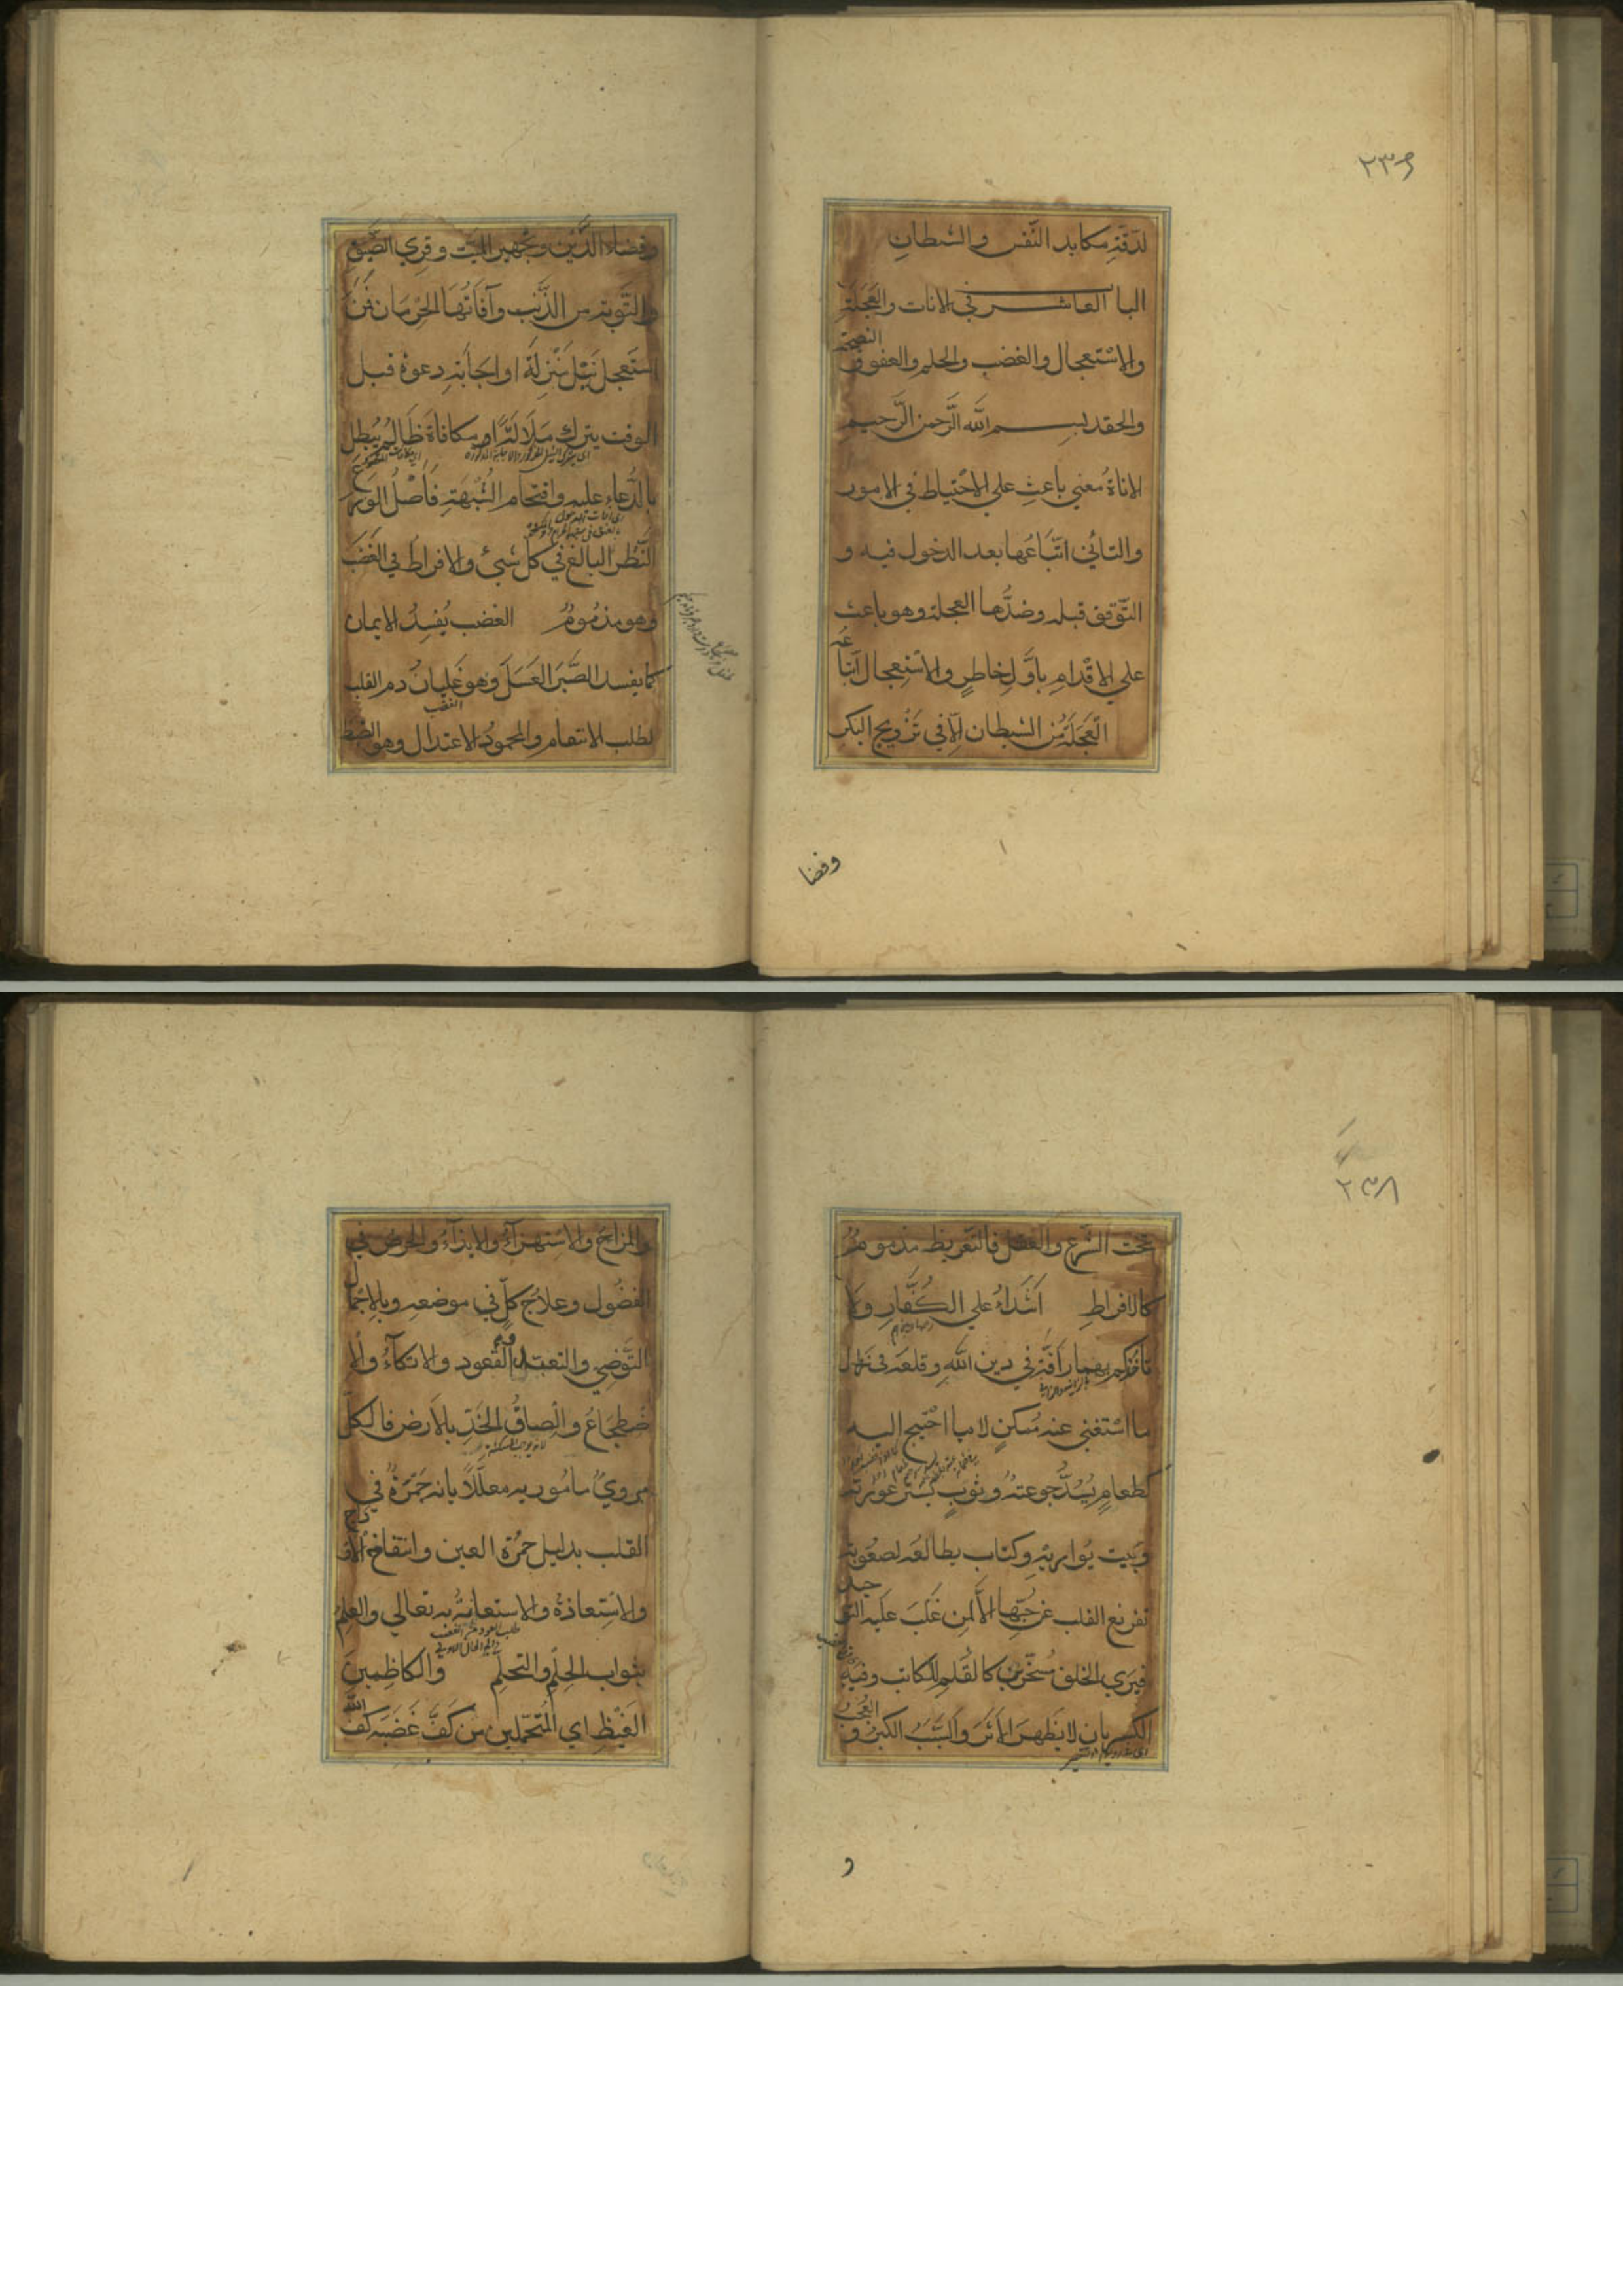 ٢٣٧
لدقة مكايد النفس والشيطان
الباب العاشر في الانات والعجلة
والاستعجال والغضب والحلم والعفو و النصيحة
والحقد بسم الله الرحمن الرحيم
الاناة معني باعث علي الاحتياط في الامور
والتاني اتباعها بعد الدخول فيه و
التوقف قبله وضدها العجلة وهو باعث
علي الاقدام باول خاطر والاستعجال اتباعه
العجلة من الشيطان الا في تزويج البكر
وقضا
وقضاء الدين وتجهيز الميت وقري الضيف
والتوبة من الذنب وآفاتها الحرمان فمن
استعجل نيل منزلة او اجابة دعوة قبل
الوقت يترك ملالة او مكافاة ظالم يبطل
بالدعاء عليه واقتحام الشبهة فاصل الورع
النظر البالغ في كل شيئ والافراط في الغضب
وهو مذموم الغضب يفسد الايمان
كما يفسد الصبر العسل وهو غليان دم القلب
لطلب الانتقام والمحمود الاعتدال وهو الضبط
٢٣٨
تحت الشرع والعقل فالتفريط مذموم
كالافراط اشداء علي الكفار ولا
تأخذكم بهما رافة في دين الله وقلعه في
ما استغني عنه مسكن لا ما احتيج اليه
كطعام يسد جوعته وثوب يستر عورته
وبيت يواريه وكتاب يطالعه لصعوبة
تفريغ القلب عن حبها الا لمن غلب عليه التوحيد
فيري الخلق مسخرين كالقلم للكاتب وفيه
الكسر بان لا يظهر الاثر والسبب الكبر و العجب
و
والمزاح والاستهزاء والايذاء والحرص في
الفضول وعلاج كل في موضعه وبالاجمال
التوضي والتعبد القعود والاتكاء والا
ضطجاع والصاق الخد بالارض فالكل
مروي مامور به معللا بانه جمرة في
القلب بدليل حمرة العين وانتفاخ الاوداج
والاستعاذة والاستعانة به تعالي والعلم
بثواب الحلم والتحلم والكاظمين
الغيظ اي المتحملين من كف غضبه كف الله